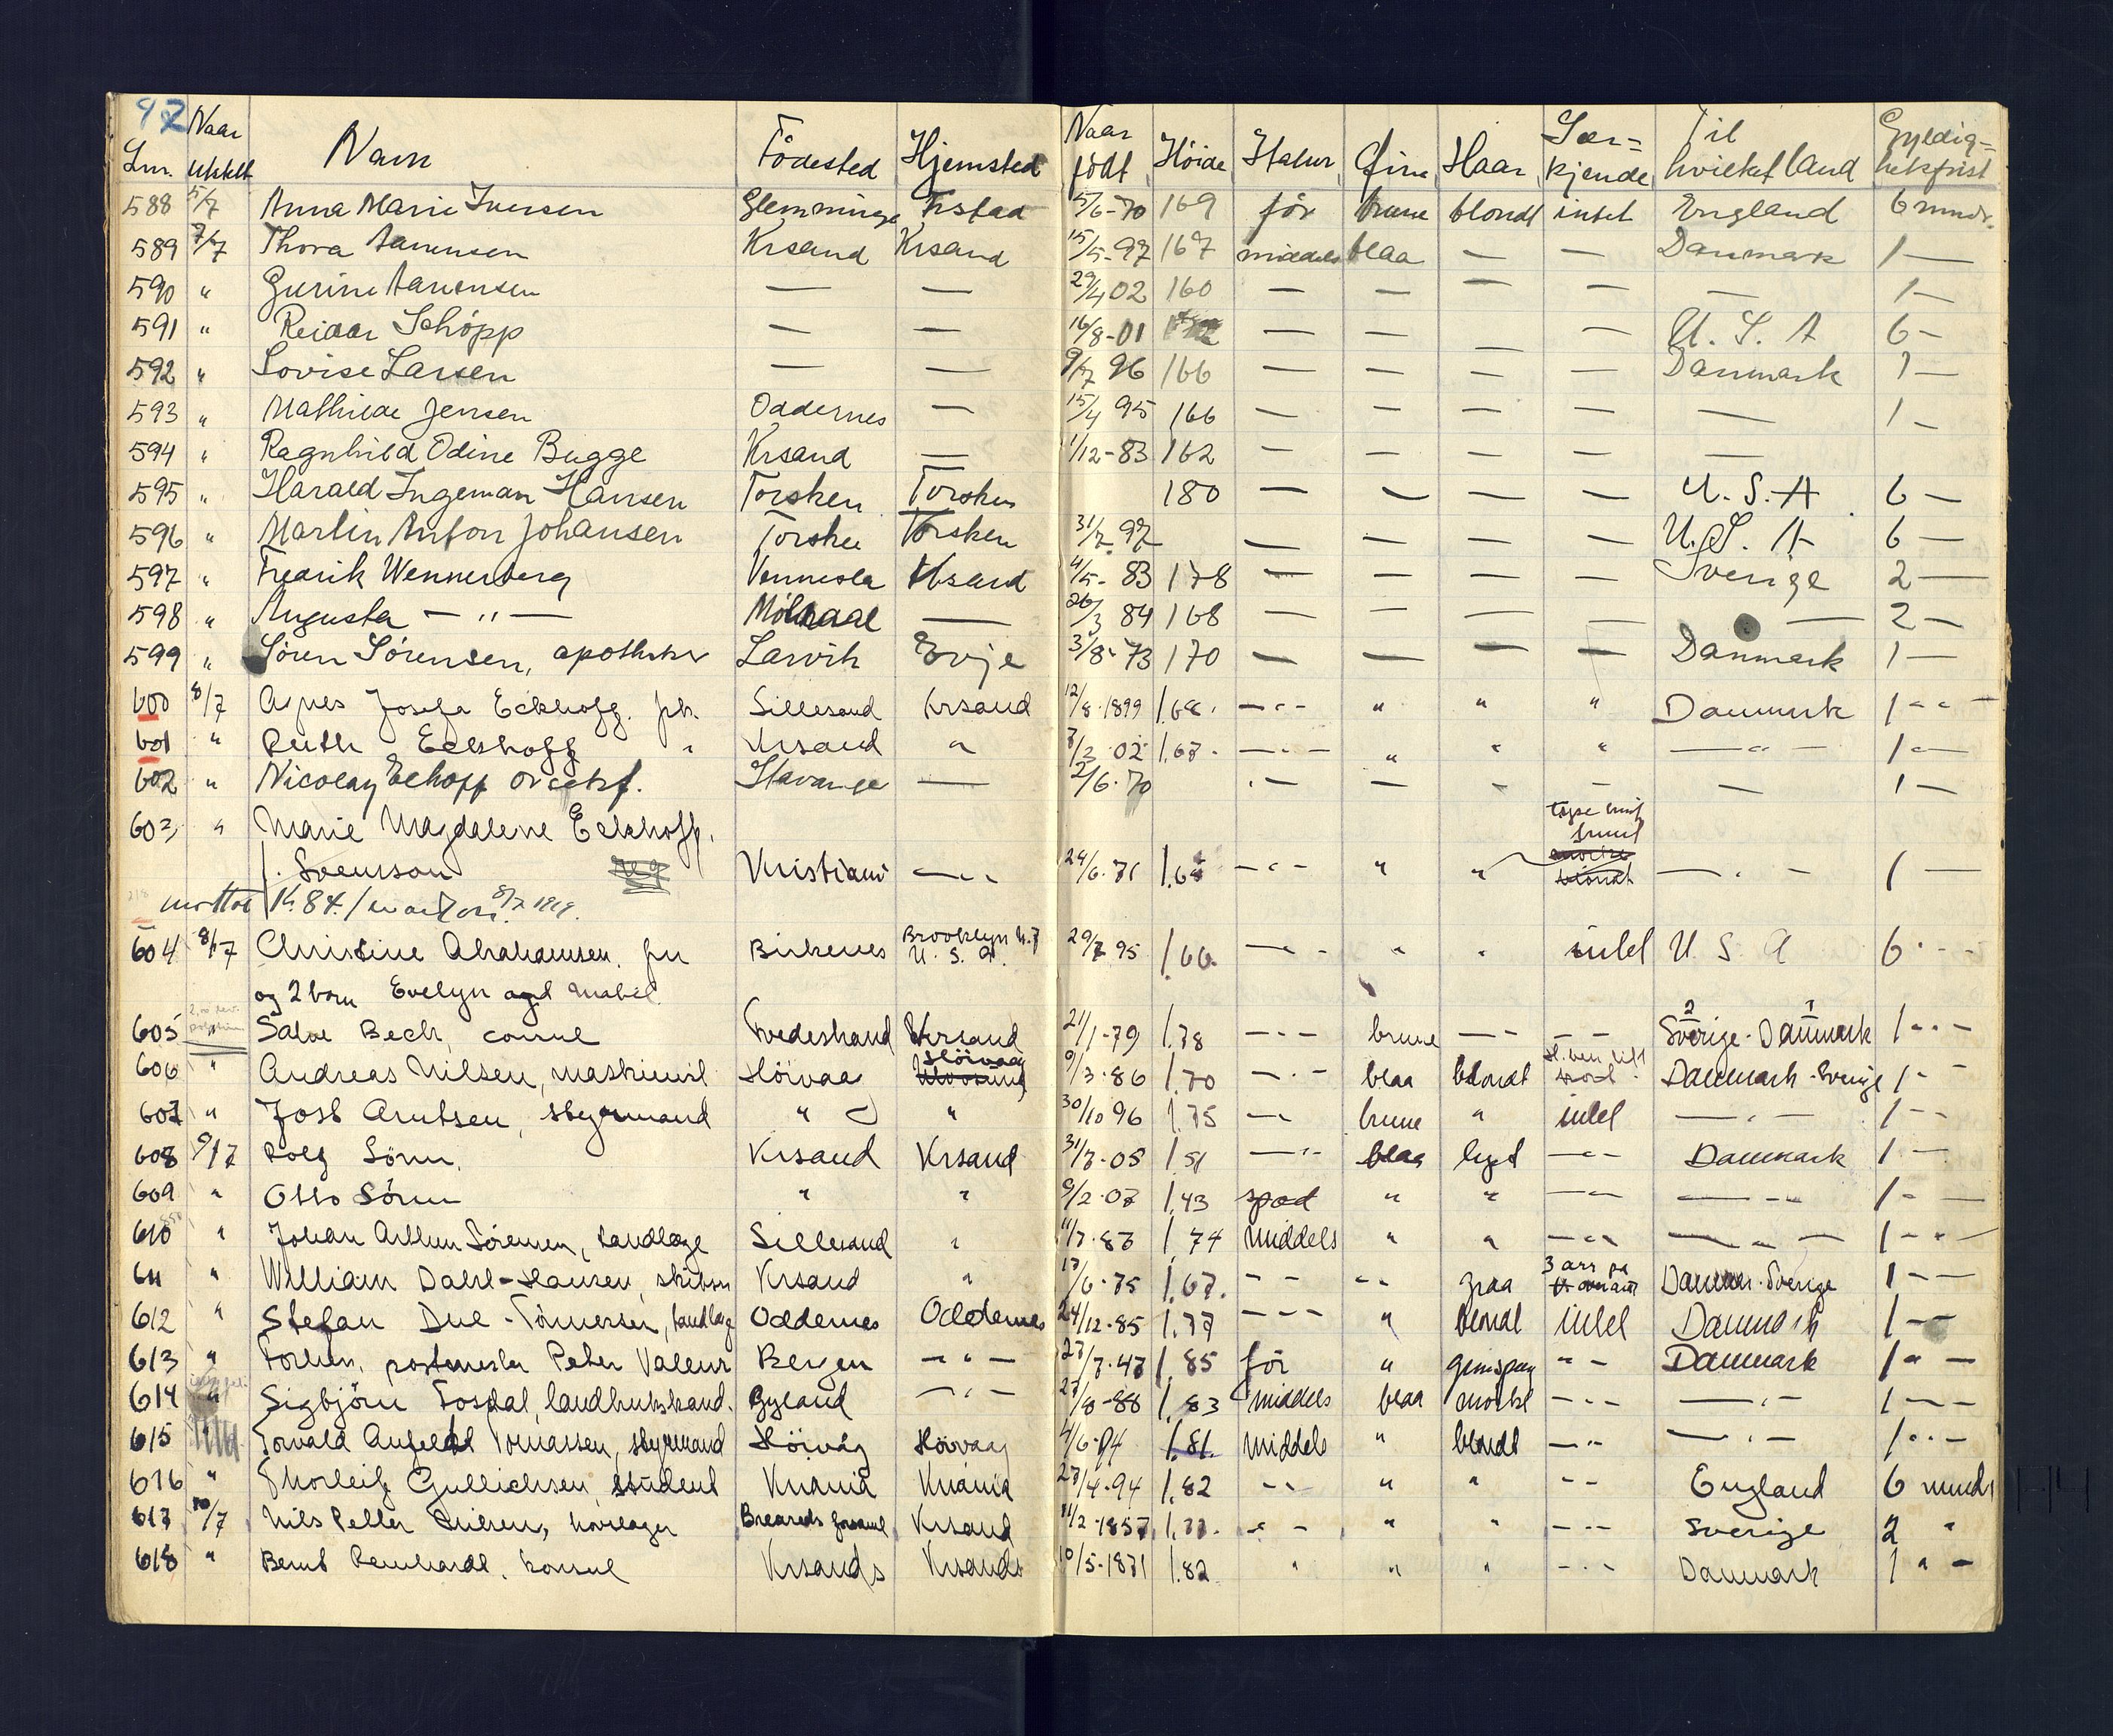 97
Lnr. Naar utstedt Navn Födested Hjemsted Naar födt Höide Statur Öine Haar Sær=kjende Til hvilket land Gyldig=hetsfrist
588 5/7 Anna Marie Iversen Glemminge Frstad 5/6-70 169 för brune blondt intet England 6 mndr.
589 7/7 Thora Aanensen Krsand Krsand 15/5-97 167 middels blaa — — Danmark 1 —
590 " Gurine Aanensen — — 29/4 02 160 — — — — — 1 —
591 " Reidar Schöpp — — 16/8-01 — — — — U. S. A 6 —
592 " Lovise Larsen — — 9/7 96 166 — — — — Danmark 1 —
593 " Mathilde Jensen Oddernes — 15/4 95 166 — — — — — 1 —
594 " Ragnhild Odine Bugge Krsand — 1/12-83 162 — — — — —
595 " Harald Ingeman Hansen Torsken Torsken 180 — — — — U. S. A 6 —
596 " Martin Anton Johansen Torsken Torsken 31/7 97 — — — — U. S. A 6 —
597 " Fredrik Wennerberg Vennesla Krsand 4/5-83 178 — — — — Sverige 2 —
598 " Augusta — " — — 26/3 84 168 — — — — — 2 —
599 " Sören Sörensen, apotheker Larvik Evje 3/8-73 170 — — — — Danmark 1 —
600 8/7 Agnes Josefa Eckhoff. frk. Lillesand Krsand 12/8-1899 1.68. — " — " " " Danmark 1 - - -
601 " Ruth Eckhoff " Krsand " 7/3 02 1.67. — " — " " " — " — 1 —
602 " Nicolay Eckhoff Stavanger — 2/6-70 " — — — — — 1 —
603 " Marie Magdalene Eckhoff,
f. Svenson Kristiania — " 24/6-71 — " — " " — " — 1 —
8/7 1919.
604 8/7 Christine Abrahamsen. fru Birkenes Brooklyn N.Y U. S. A. 29/7 95 1.66 — " — " " intet U. S. A 6 - - -
og 2 barn Evelyn og Mabel
605 " Salve Bech, consul Tvedestrand Krsand 21/1-79 1.78 — " — brune — — — — 2 Sverige - 1 Danmark 1 - - -
606 " Andreas Nilsen, maskinist Höivaag Höivaag 9/3-86 1.70 — " — blaa blondt Danmark - Sverige 1 - -
607 " Josb Arntsen, styrmand " " 30/10 96 1.75 — — brune " intet — " — 1 - -
608 9/7 Rolf Sörin. Krsand Krsand 31/3-05 1.51 — " — blaa lyst — " — Danmark 1 —
609 " Otto Sörin " " 1.43 spæd " " — " — — " — 1 - —
610 " Johan Arthur Sörensen, tandlæge Lillesand " 11/7-83 1.74 middels " " — " — — " — 1 - " —
611 " William Dahl-Hansen, Krsand " 17/6-75 1.67. - - - - graa 3 arr paa Danmark - Sverige 1 - —
612 " Stefan Due-Tönnessen, tandlæge Oddernes Oddernes 24/12-85 1.77 — — — " blondt intet Danmark 1 - —
613 " Forhen. postmester Peter Valeur Bergen — " — 27/7-47 1.85 för " " — Danmark 1 " —
614 " Sigbjörn Fosdal, landbrukskand. Gyland — " — 27/8-88 1.83 middels blaa mörkt — " — — " — 1 - —
615 " Torvald Anfeldt Tomassen, styrmand Höivåg Höivaag 4/6-94 1.81. middels " blondt — " — — " — 1 - - —
616 " Thorleif Gullichsen, student Krania Krania 27/4-94 1.82 - - " " - - England 6 mndr
617 10/7 Nils Petter hovslager Krsand 11/2-1857 " - " " — " — Sverige 2 "
618 " Bernt Reinhardt, konsul Krsands Krsands 10/5-1871 1.82 " " " — " — Danmark 1 " —